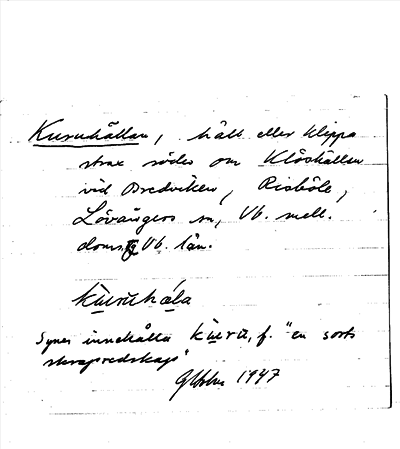 Kuruhällan, häll eller klippa
strax söder om Klöshällan
vid Bredviken, Risböle,
Lövångers sn, Vb. mell.
doms. Vb. län.
kùruhála
Synes innehålla kùru, f. "en sorts
skrapredskap"
1947